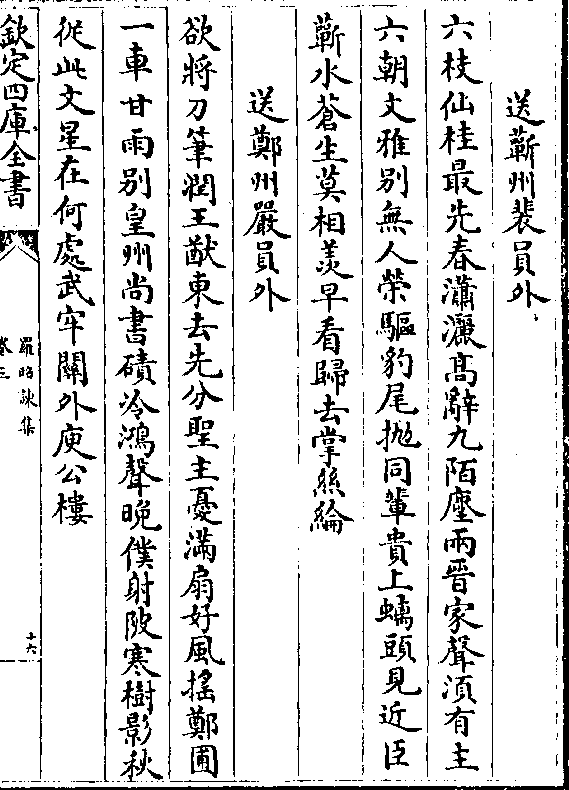 送蘄州裴員外
六枝仙桂最先春瀟灑髙辭九陌塵兩晉家聲須有主
六朝文雅別無人榮驅豹尾抛同輩貴上螭頭見近臣
蘄水蒼生莫相羨早看歸去掌絲綸
送鄭州嚴員外
欲將刀筆潤王猷東去先分聖主憂滿扇好風揺鄭圃
一車甘雨别皇州尚書磧冷鴻聲晩僕射陂寒樹影秋
從此文星在何處武牢關外庾公樓
欽定四庫全書
羅昭諫集
卷三
十六